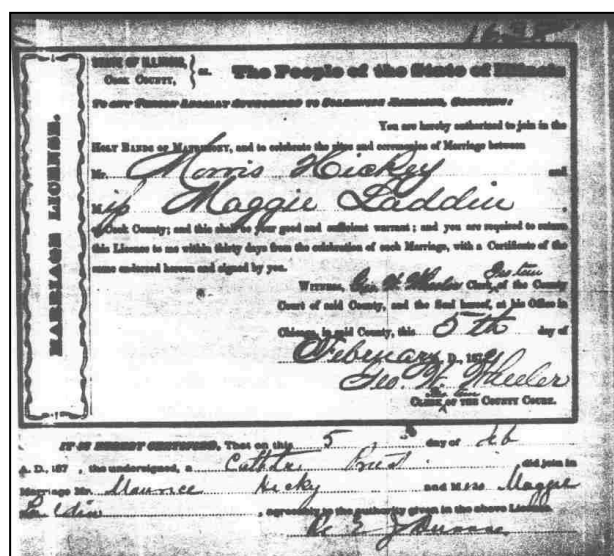 STATE OF ILLINOIS, COOK COUNTY, ss. The People of the State of Illinois
TO ANY PERSON LEGALLY AUTHORIZED TO SOLEMNIZE MARRIAGE, GREETING:
MARRIAGE LICENSE.
You are hereby authorized to join in the
HOLY BANDS OF MATRIMONY, and to celebrate the rites and ceremonies of Marriage between
Mr. Morris Hickey and
Miss Maggie Laddin,
of Cook County; and this shall be your good and sufficient warrant; and you are required to return
this License to me within thirty days from the celebration of such Marriage, with a Certificate of the
same endorsed hereon and signed by you.
WITNESS, Geo. W. Wheeler Clerk, of the County
Court of said County, and the Seal hereof, at his Office in
Chicago, in said County, this 5th day of
February D. 187
Geo. W. Wheeler
CLERK OF THE COUNTY COURT.
IT IS HEREBY CERTIFIED, That on this 5 day of Feb
A. D. 187 , the undersigned, a did join in
Marriage Mr. Maurice Hicky and Miss Maggie
, agreeably to the authority given in the above License.